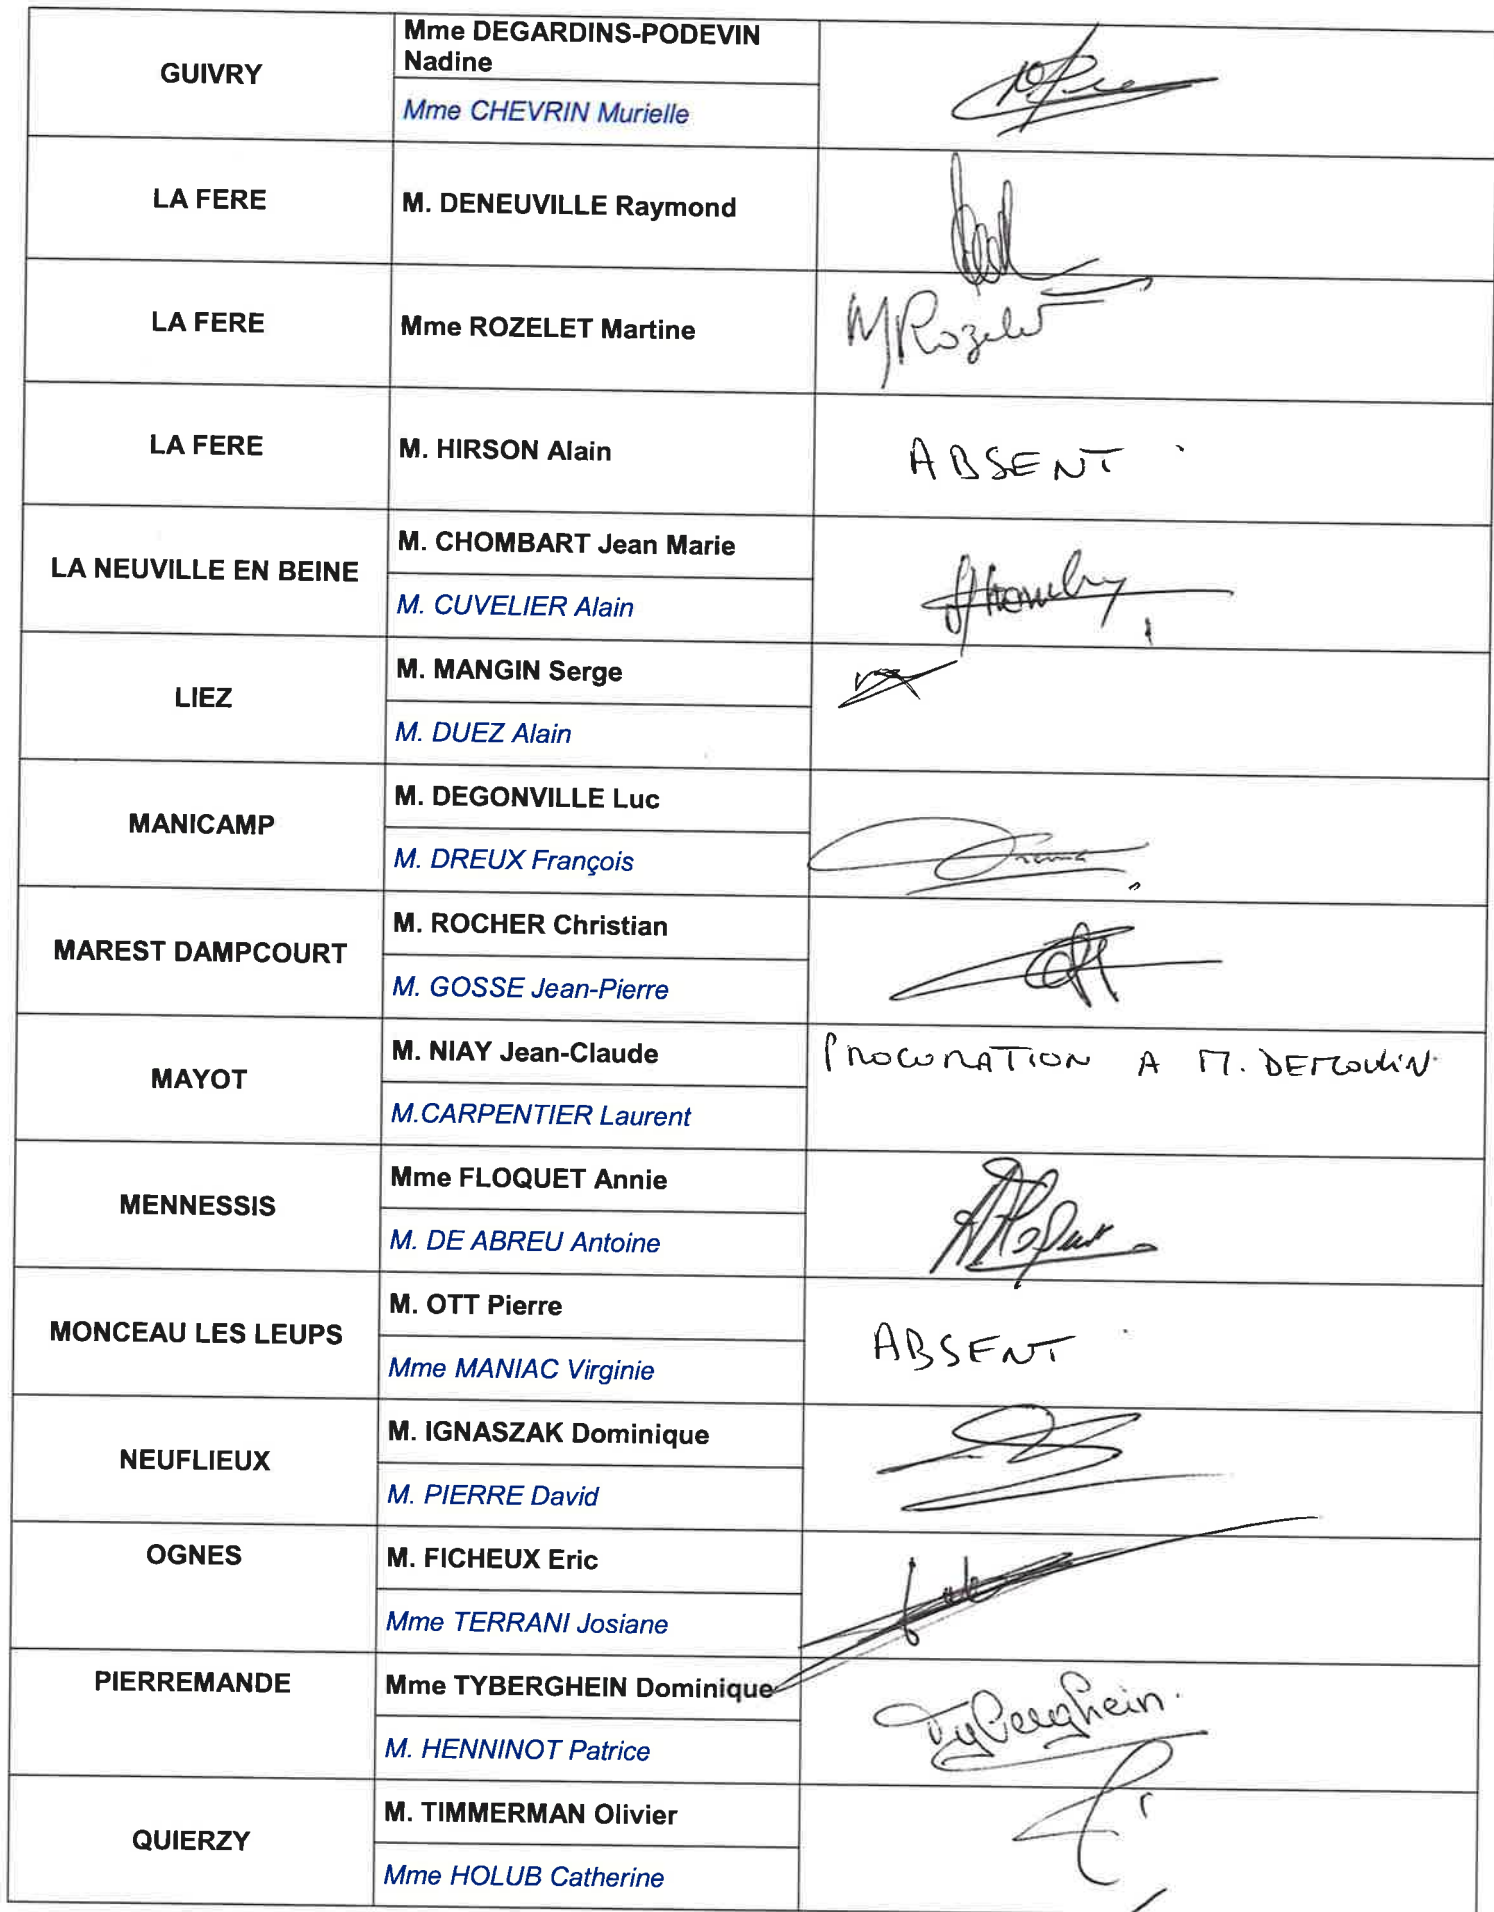 GUIVRY
Mme DEGARDINS-PODEVIN
Nadine
Mme CHEVRIN Murielle
LA FERE
M. DENEUVILLE Raymond
LA FERE
Mme ROZELET Martine
MRozelet
LA FERE
M. HIRSON Alain
ABSENT
LA NEUVILLE EN BEINE
M. CHOMBART Jean Marie
M. CUVELIER Alain
LIEZ
M. MANGIN Serge
M. DUEZ Alain
MANICAMP
M. DEGONVILLE Luc
M. DREUX François
MAREST DAMPCOURT
M. ROCHER Christian
M. GOSSE Jean-Pierre
MAYOT
M. NIAY Jean-Claude
M.CARPENTIER Laurent
PROCURATION A M. DEMOULIN
MENNESSIS
Mme FLOQUET Annie
M. DE ABREU Antoine
MONCEAU LES LEUPS
M. OTT Pierre
Mme MANIAC Virginie
ABSENT
NEUFLIEUX
M. IGNASZAK Dominique
M. PIERRE David
OGNES
M. FICHEUX Eric
Mme TERRANI Josiane
PIERREMANDE
Mme TYBERGHEIN Dominique
M. HENNINOT Patrice
Tyberghein.
QUIERZY
M. TIMMERMAN Olivier
Mme HOLUB Catherine